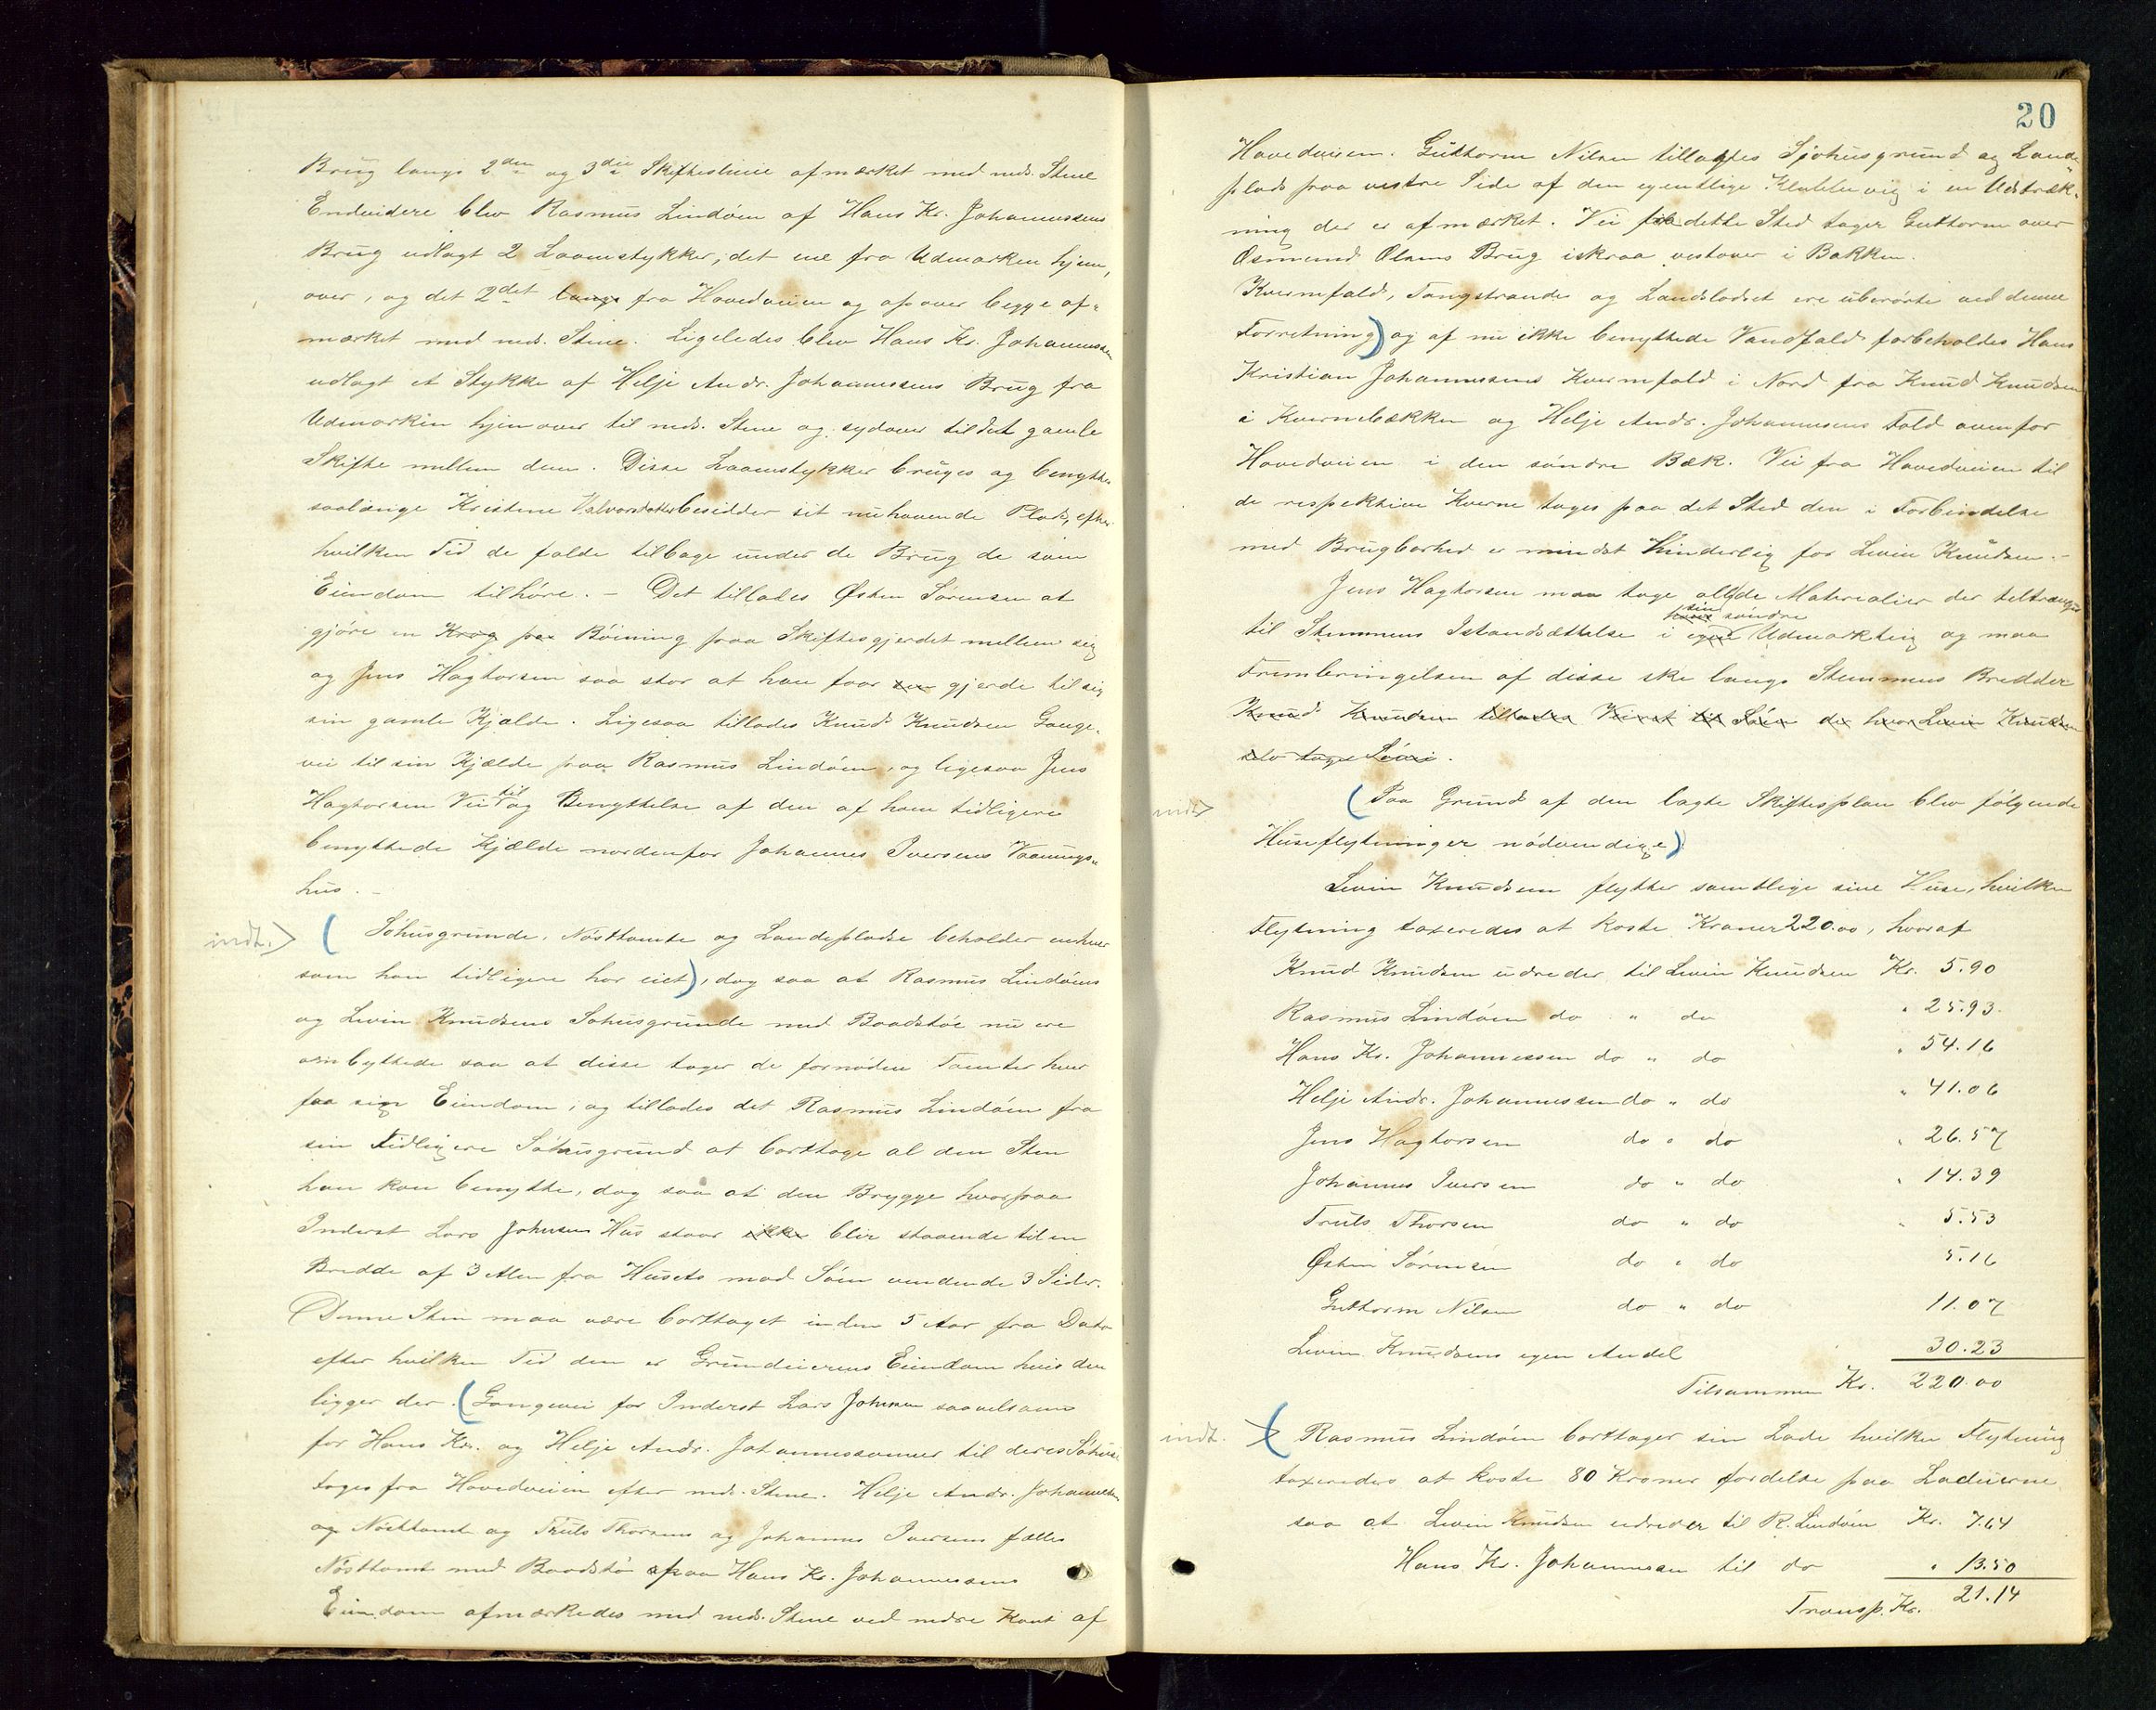 Brug langs 2den og 3die Skifteslinie afmærket med neds. Stene
Endvidere blev Rasmus Lindøen af Hans Kr. Johannessens
Brug udlagt 2 Laanestykker, det ene fra Udmarken hjem,
over, og det 2det langs fra Hovedveien og opover begge af-
mærket med neds. Stene. Ligeledes blev Hans Kr. Johannessen
udlagt et Stykke af Helje Andr. Johannessens Brug fra
Udmarken hjemover til neds. Stene og sydover til det gamle
Skifte mellem dem. Disse Laanestykker bruges og benyttes
saalænge Kristine Halvorsdatter besidder sit nuhavende Plads, efter
hvilken Tid de falde tilbage under de Brug de som
Eiendom tilhøre. - Det tillades Østen Sørensen at
gjøre en Krog paa Bøining paa Skiftesgjerdet mellem sig
og Jens Hagtorsen saa stor at han faar gjerde til sig
sin gamle Kjelde. Ligesaa tillades Knud Knudsen Gange-
vei til sin Kjælde paa Rasmus Lindøen, og ligesaa Jens
Hagtorsen Vei til og Benyttelse af den af ham tidligere
benyttede Kjælde nordenfor Johannes Iversens Vaanings-
hus. -
indt. > ( Søhusgrunde, Nøsttomte og Landepladse beholder enhver
som han tidligere har eiet), dog saa at Rasmus Lindøens
og Levin Knudsens Søhusgrunde med Baadstøe nu ere
ombyttede saa at disse tager de fornødne Tomter hver
paa sin Eiendom, og tillades det Rasmus Lindøen fra
sin tidligere Søhusgrund at borttage al den Sten
han kan benytte, dog saa at den Brygge hvorpaa
Inderst Lars Johnsens Hus staar ikke blir staaende til en
Bredde af 3 Alen fra Husets mod Søen vendende 3 Sider.
Denne Sten maa være borttaget inden 5 Aar fra Dato
efter hvilken Tid den er Grundeierens Eiendom hvis den
ligger der. (Gangevei for Inderst Lars Johnsen saavelsom
for Hans Kr. og Helje Andr. Johannessønner til deres Søhuse
tages fra Hovedveien efter neds. Stene. Helje Andr. Johannessens
Nøsttomt og Truls Thorsens og Johannes Iversens fælles
Nøsttomt med Baadstø paa Hans Kr. Johannessens
Eiendom afmærkedes med neds. Stene ved nedre Kant af
20
Hovedveien. Guttorm Nilsen tillagdes Sjøhusgrund og Lande
plads paa vestre Side af den egentlige i en Udstræk-
ning der er afmærket. Vei til dette Sted tager Guttorm over
Osmund Olsens Brug iskraa vestover i Bakken.
Kvernefald, Tangstrande og Landslodset ere uberørte ved denne
Forretning) og af nu ikke benyttede Vandfald forbeholdes Hans
Kristian Johannessens Kvernfald i Nord fra Knud Knudsen
i Kvernebækken og Helje Andr. Johannessens Fald ovenfor
Hovedveien i den søndre Bæk. Vei fra Hovedveien til
de respektive Kverne tages paa det Sted den i Forbindelse
med Brugbarhed er mindst hinderlig for Levin Knudsen. -
Jens Hagtorsen maa tage alle de Materialier der tiltrænges
sin søndre
til Stemmens Istandsættelse i egen Udmarkteig og maa
Frembringelsen af disse ske langs Stemmens Bredder
Knud Knudsen tillades Veiret til Søen der hvor Levin Knudsen
selv tager Søvei.
indt > (Paa Grund af den lagte Skiftesplan blev følgende
Huseflytninger nødvendige)
Levin Knudsen flytter samtlige sine Huse, hvilken
Flytning taxeredes at koste Kroner 220.00, hvoraf
Knud Knudsen udreder til Levin Knudsen Kr. 5.90
Rasmus Lindøen do " do " 25.93
Hans Kr. Johannessen do " do " 54.16
Helje Andr. Johannessen do " do " 41.06
Jens Hagtorsen do " do " 26.57
Johannes Iversen do " do " 14.39
Truls Thorsen do " do " 5.53
Østen Sørensen do " do 5.16
Guttorm Nilsen do " do 11.07
Levin Knudsens egen Andel 30.23
Tilsammen Kr. 220.00
indt. > ( Rasmus Lindøen borttager sin Lade hvilken Flytning
taxeredes at koste 80 Kroner fordelte paa Lodeierne
saa at Levin Knudsen udreder til R. Lindøen Kr. 7.64
Hans Kr. Johannessen til do " 13.50
Transp. Kr. 21.14